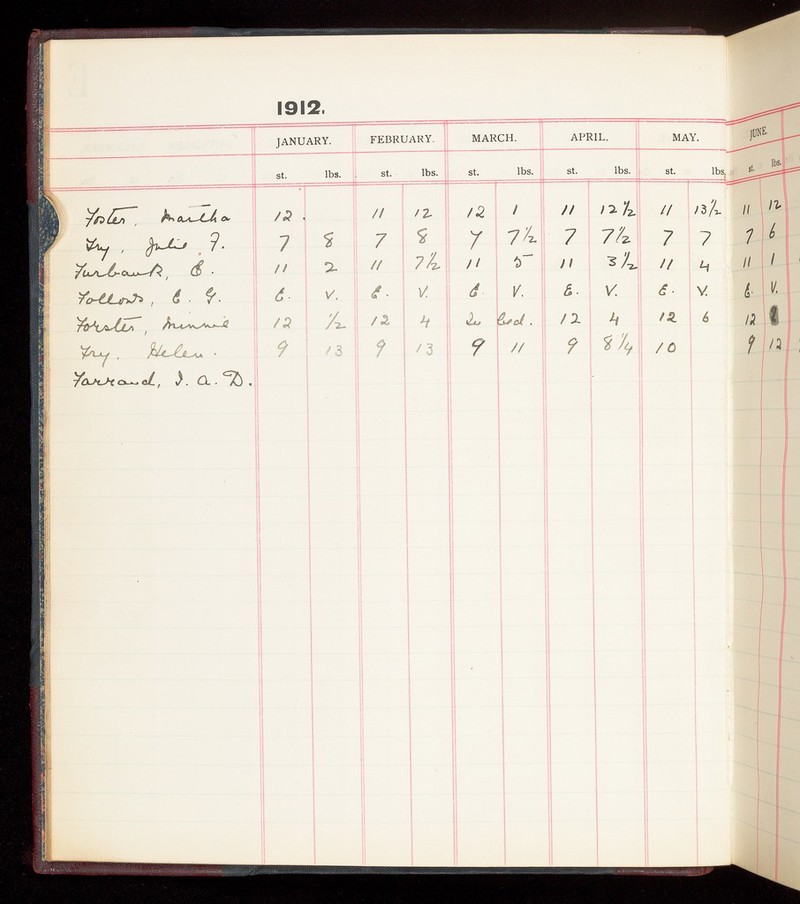 1912.
JANUARY. FEBRUARY. MARCH. APRIL. MAY. JUNE.
st. lbs. st. lbs. st. lbs. st. lbs. st. lbs. st. lbs.
Foster, Martha 12. 11 12 12 1 11 12½ 11 13½ 11 12
Fry, Julia F. 7 8 7 8 7 7½ 7 7½ 7 7 7 6
Furbank, E. 11 2 11 7½ 11 5 11 3½ 11 4 11 1
Follows, E. G. E. V. E. V. E. V. E. V. E. V. E. V.
Forster, Minnie 12 ½ 12 4 In bed. 12 4 12 6 12
Fry, Helen. 9 13 9 13 9 11 9 8¼ 10 9 12
Farrand, I. A. D.